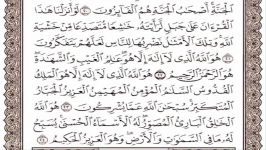 الْجَنَّةِ أَصْحَابُ الْجَنَّةِ هُمُ الْفَائِزُونَ ۝ لَوْ أَنزَلْنَا هَٰذَا
الْقُرْءَانَ عَلَىٰ جَبَلٍ لَّرَأَيْتَهُ خَاشِعًا مُّتَصَدِّعًا مِّنْ خَشْيَةِ
اللَّهِ وَتِلْكَ الْأَمْثَالُ نَضْرِبُهَا لِلنَّاسِ لَعَلَّهُمْ يَتَفَكَّرُونَ
۝ هُوَ اللَّهُ الَّذِى لَا إِلَٰهَ إِلَّا هُوَ عَالِمُ الْغَيْبِ وَالشَّهَادَةِ
هُوَ الرَّحْمَٰنُ الرَّحِيمُ ۝ هُوَ اللَّهُ الَّذِى لَا إِلَٰهَ إِلَّا هُوَ الْمَلِكُ
الْقُدُّوسُ السَّلَامُ الْمُؤْمِنُ الْمُهَيْمِنُ الْعَزِيزُ الْجَبَّارُ
الْمُتَكَبِّرُ سُبْحَانَ اللَّهِ عَمَّا يُشْرِكُونَ ۝ هُوَ اللَّهُ
الْخَالِقُ الْبَارِئُ الْمُصَوِّرُ لَهُ الْأَسْمَاءُ الْحُسْنَىٰ يُسَبِّحُ
لَهُ مَا فِى السَّمَاوَاتِ وَالْأَرْضِ وَهُوَ الْعَزِيزُ الْحَكِيمُ ۝